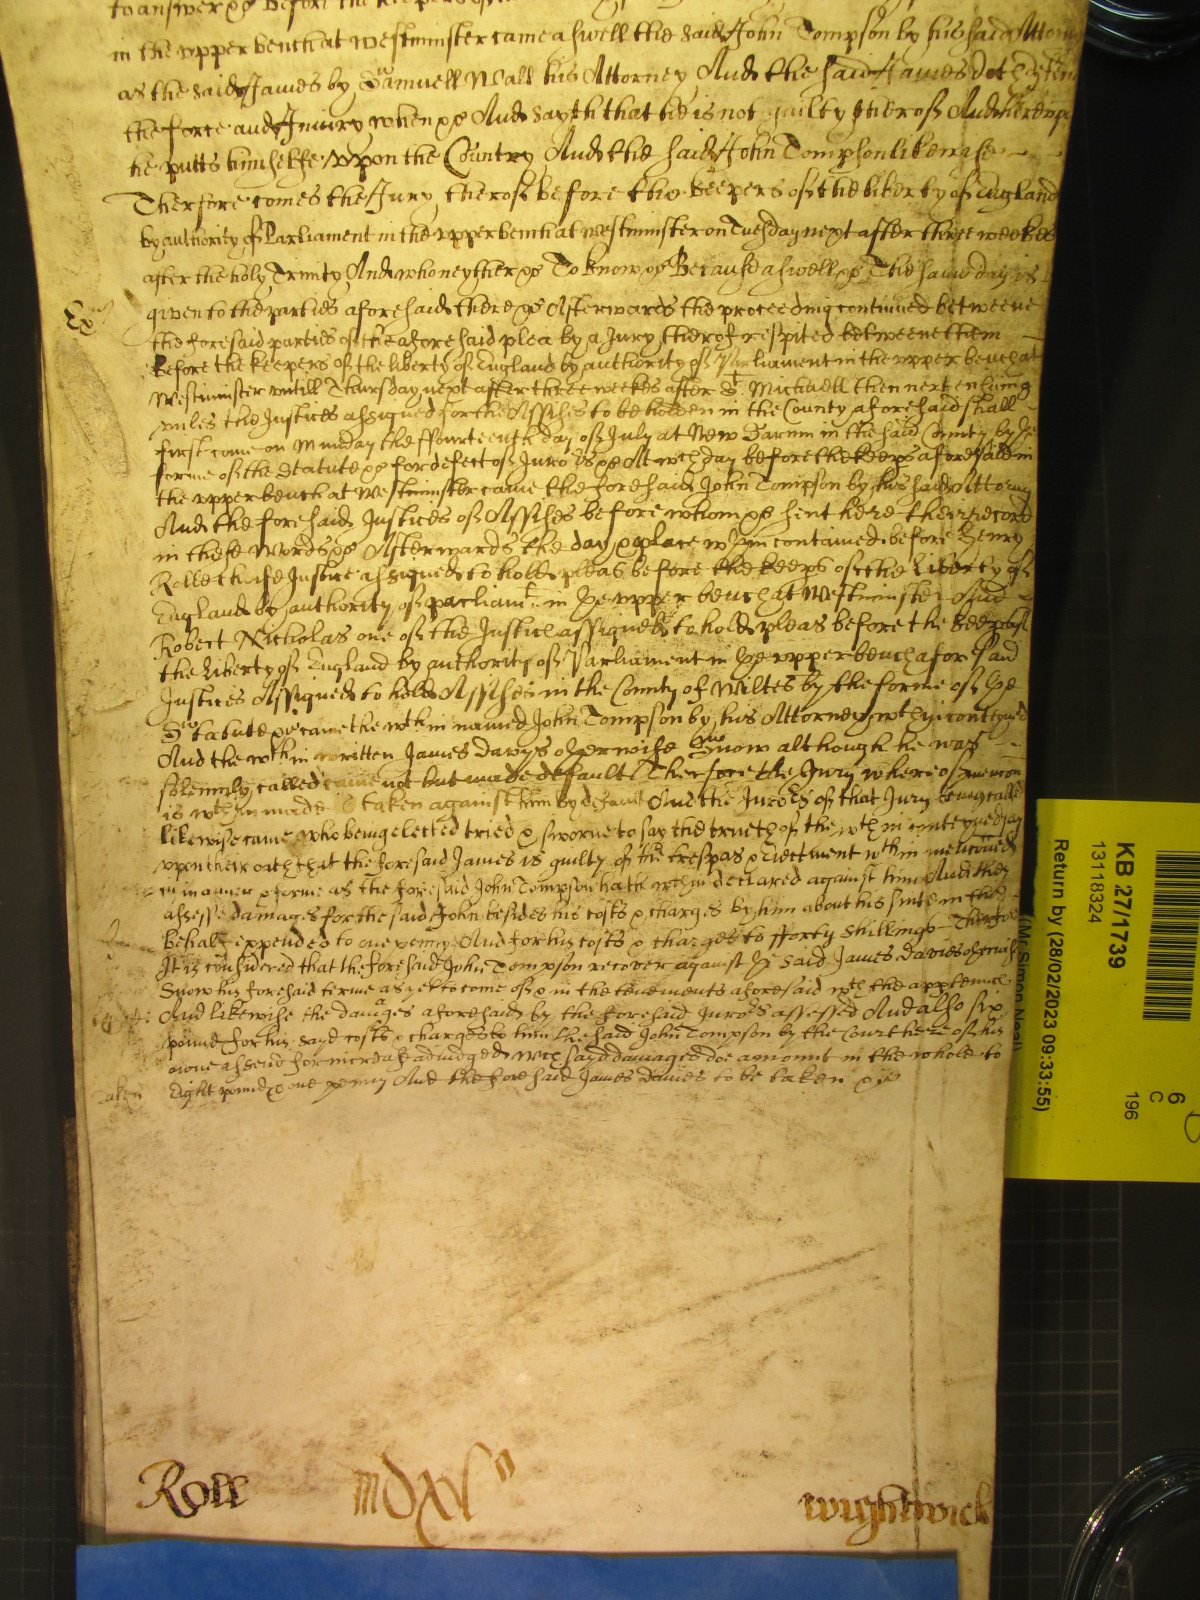 to answer &c before the keepers of
in the upper bench at Westminster came aswell the said John Tompson by his said Attorny
as the said James by Samuell Wall his Attorney And the said James doth defend
the force and Iniury when &c And sayth that he is not guilty therof And therof
he putts himselfe vpon the Country And the said John Tompson likewise
Therfore comes the Jury therof before the keepers of the liberty of England
by authority of Parliament in the vpper bench at Westminster on Tuesday next after three weekes
after the holy Trinity And who neyther &c To know &c Because aswell &c The same day is
Ex
given to the parties aforesaid there &c Afterwards the proceeding continued betweene
the foresaid parties of the aforesaid plea by a Jury therof respited betweene them
before the keepers of the liberty of England by authority of Parliament in the vpper bench at
Westminster vntill Thursday next after three weekes after St Michaell then next ensuing
vnles the Justices assigned for the Assises to be holden in the County aforesaid shall
first come on Munday the ffourteenth day of July at New Sarum in the said County by ye
forme of the Statute &c for defect of Juro rs &c At wch day before the keeps aforesaid in
the vpper bench at Westminster came the foresaid John Tompson by his said Attorny
And the foresaid Justices of Assises before whom &c sent here their record
in these words &c Afterwards the day & place wthin contained before Henry
Rolle cheife Justice assigned to hold pleas before the keeps of the Liberty of
England by authority of parliamt in ye vpper bench at Westminster And
Robert Nicholas one of the Justices assigned to hold pleas before the keeps of
the Liberty of England by authority of Parliament in ye vpper bench aforesaid
Justices Assigned to hold Assises in the County of Wiltes by the forme of ye
Statute &c came the wthin named John Tompson by his Attorney wthin conteyned
And the wthin written James Davys otherwise Snow although he was
solemnly called came not but made default Therfore the Jury wherof mencon
is wthin made taken against him by default And the Juro rs of that Jury being called
likewise came who being elected tried & sworne to say the trueth of the wthin conteyned say
vpon their oath that the foresaid James is guilty of the trespas & eiectment wthin mencioned
in manner & forme as the foresaid John Tompson hath wthin declared against him And they
assesse damages for the said John besides his costs & charges by him about his suite in that
behalf expended to one penny And for his costs & charges to fforty shillings Therfore
It is considered that the foresaid John Tompson recover against ye said James Davies otherwise
Snow his foresaid terme as yet to come of & in the tenements aforesaid wth the apptennces
And likewise the damages aforesaid by the foresaid Juro rs assessed And also six
pounds for his sayd costs & charges to him the said John Tompson by the Court here of his
owne assent for increase adiudged Wch sayd damages doe amount in the whole to
taken
Eight pounds & one penny And the foresaid James Davies to be taken &c
Roll
MDXL
wightwick
KB 27/1739
13118324
Return by (28/02/2023 09:33:55)
(Mr Simon Neal)
6
C
196